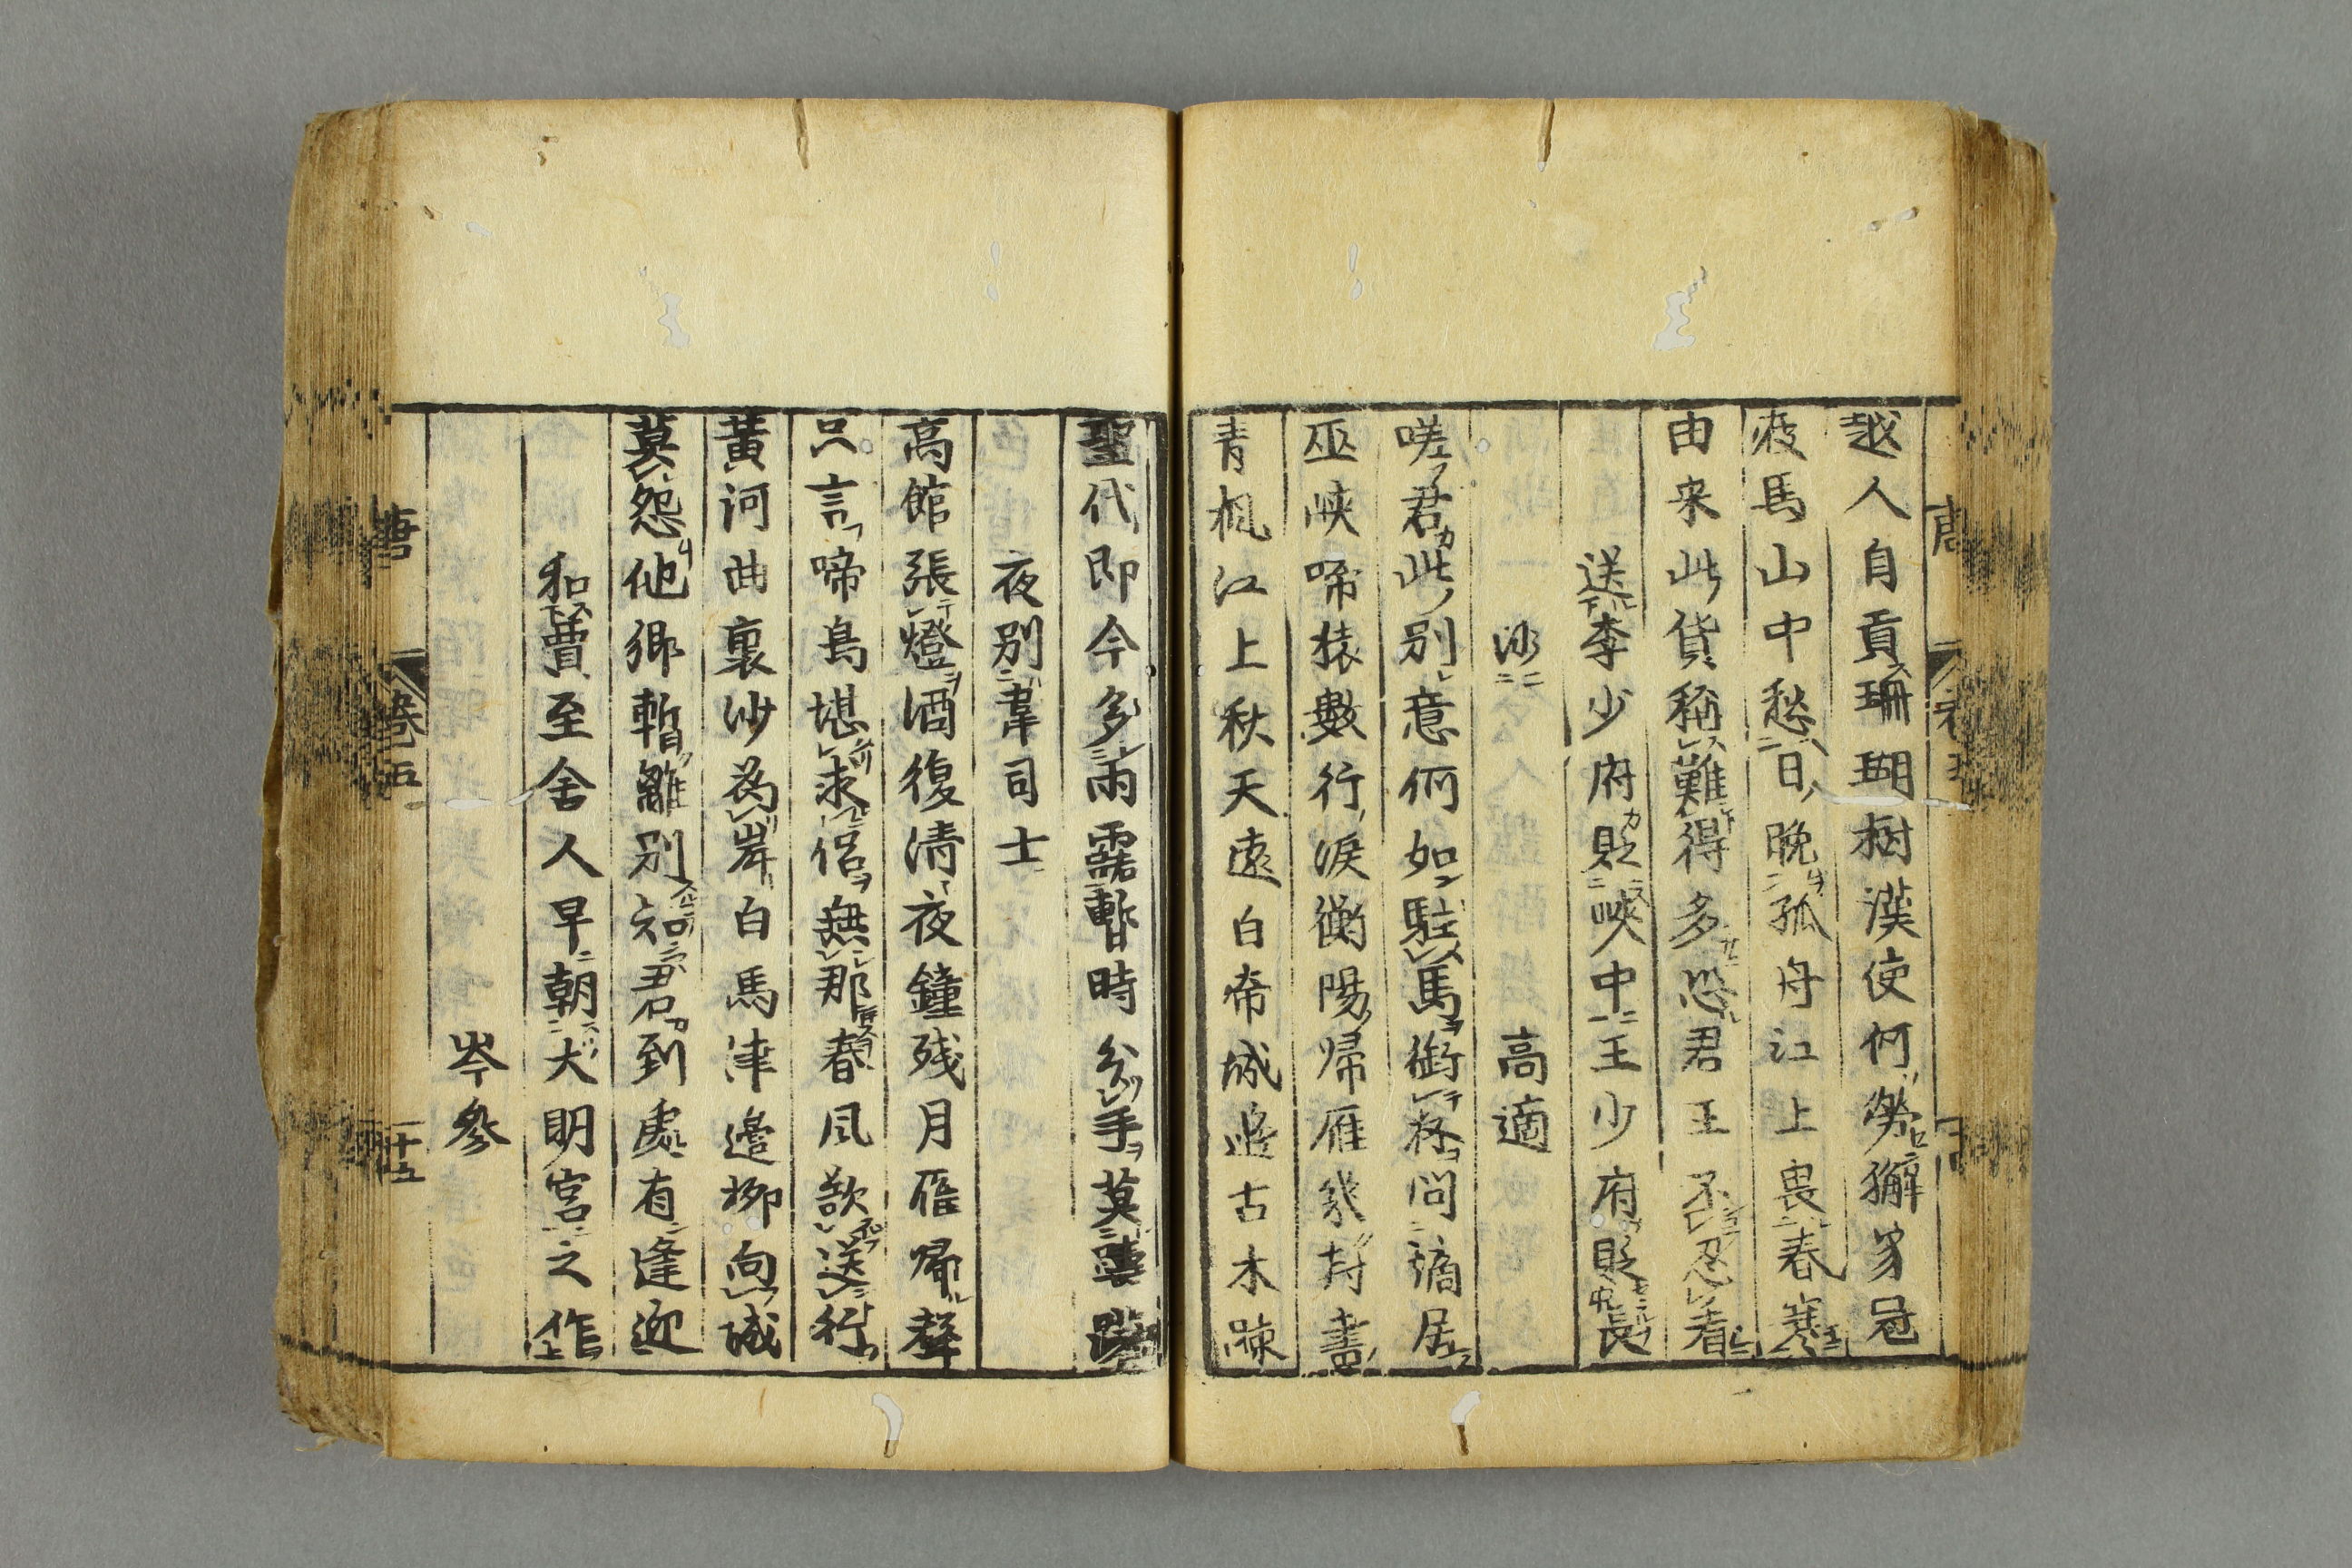 越人自貢珊瑚樹漢使何勞獬豸冠
疲馬山中愁日晚孤舟江上畏春寒
由来此貨稱難得多恐君王不忍看
送李少府貶峽中王少府貶長
沙 高適
嗟君此別意何如駐馬銜盃問謫居
巫峽啼猿數行淚衡陽帰雁幾封書
青楓江上秋天遠白帝城邊古木疎
聖代即今多雨露暫時分手莫躊躇
夜別韋司士
高館張燈酒復清夜鐘残月雁帰聲
只言啼鳥堪求侶無那春風欲送行
黃河曲裏沙為岸白馬津邊柳向城
莫怨他鄉暫離別知君到處有逢迎
和賈至舍人早朝大明宮之作
岑參
唐 卷五 十五